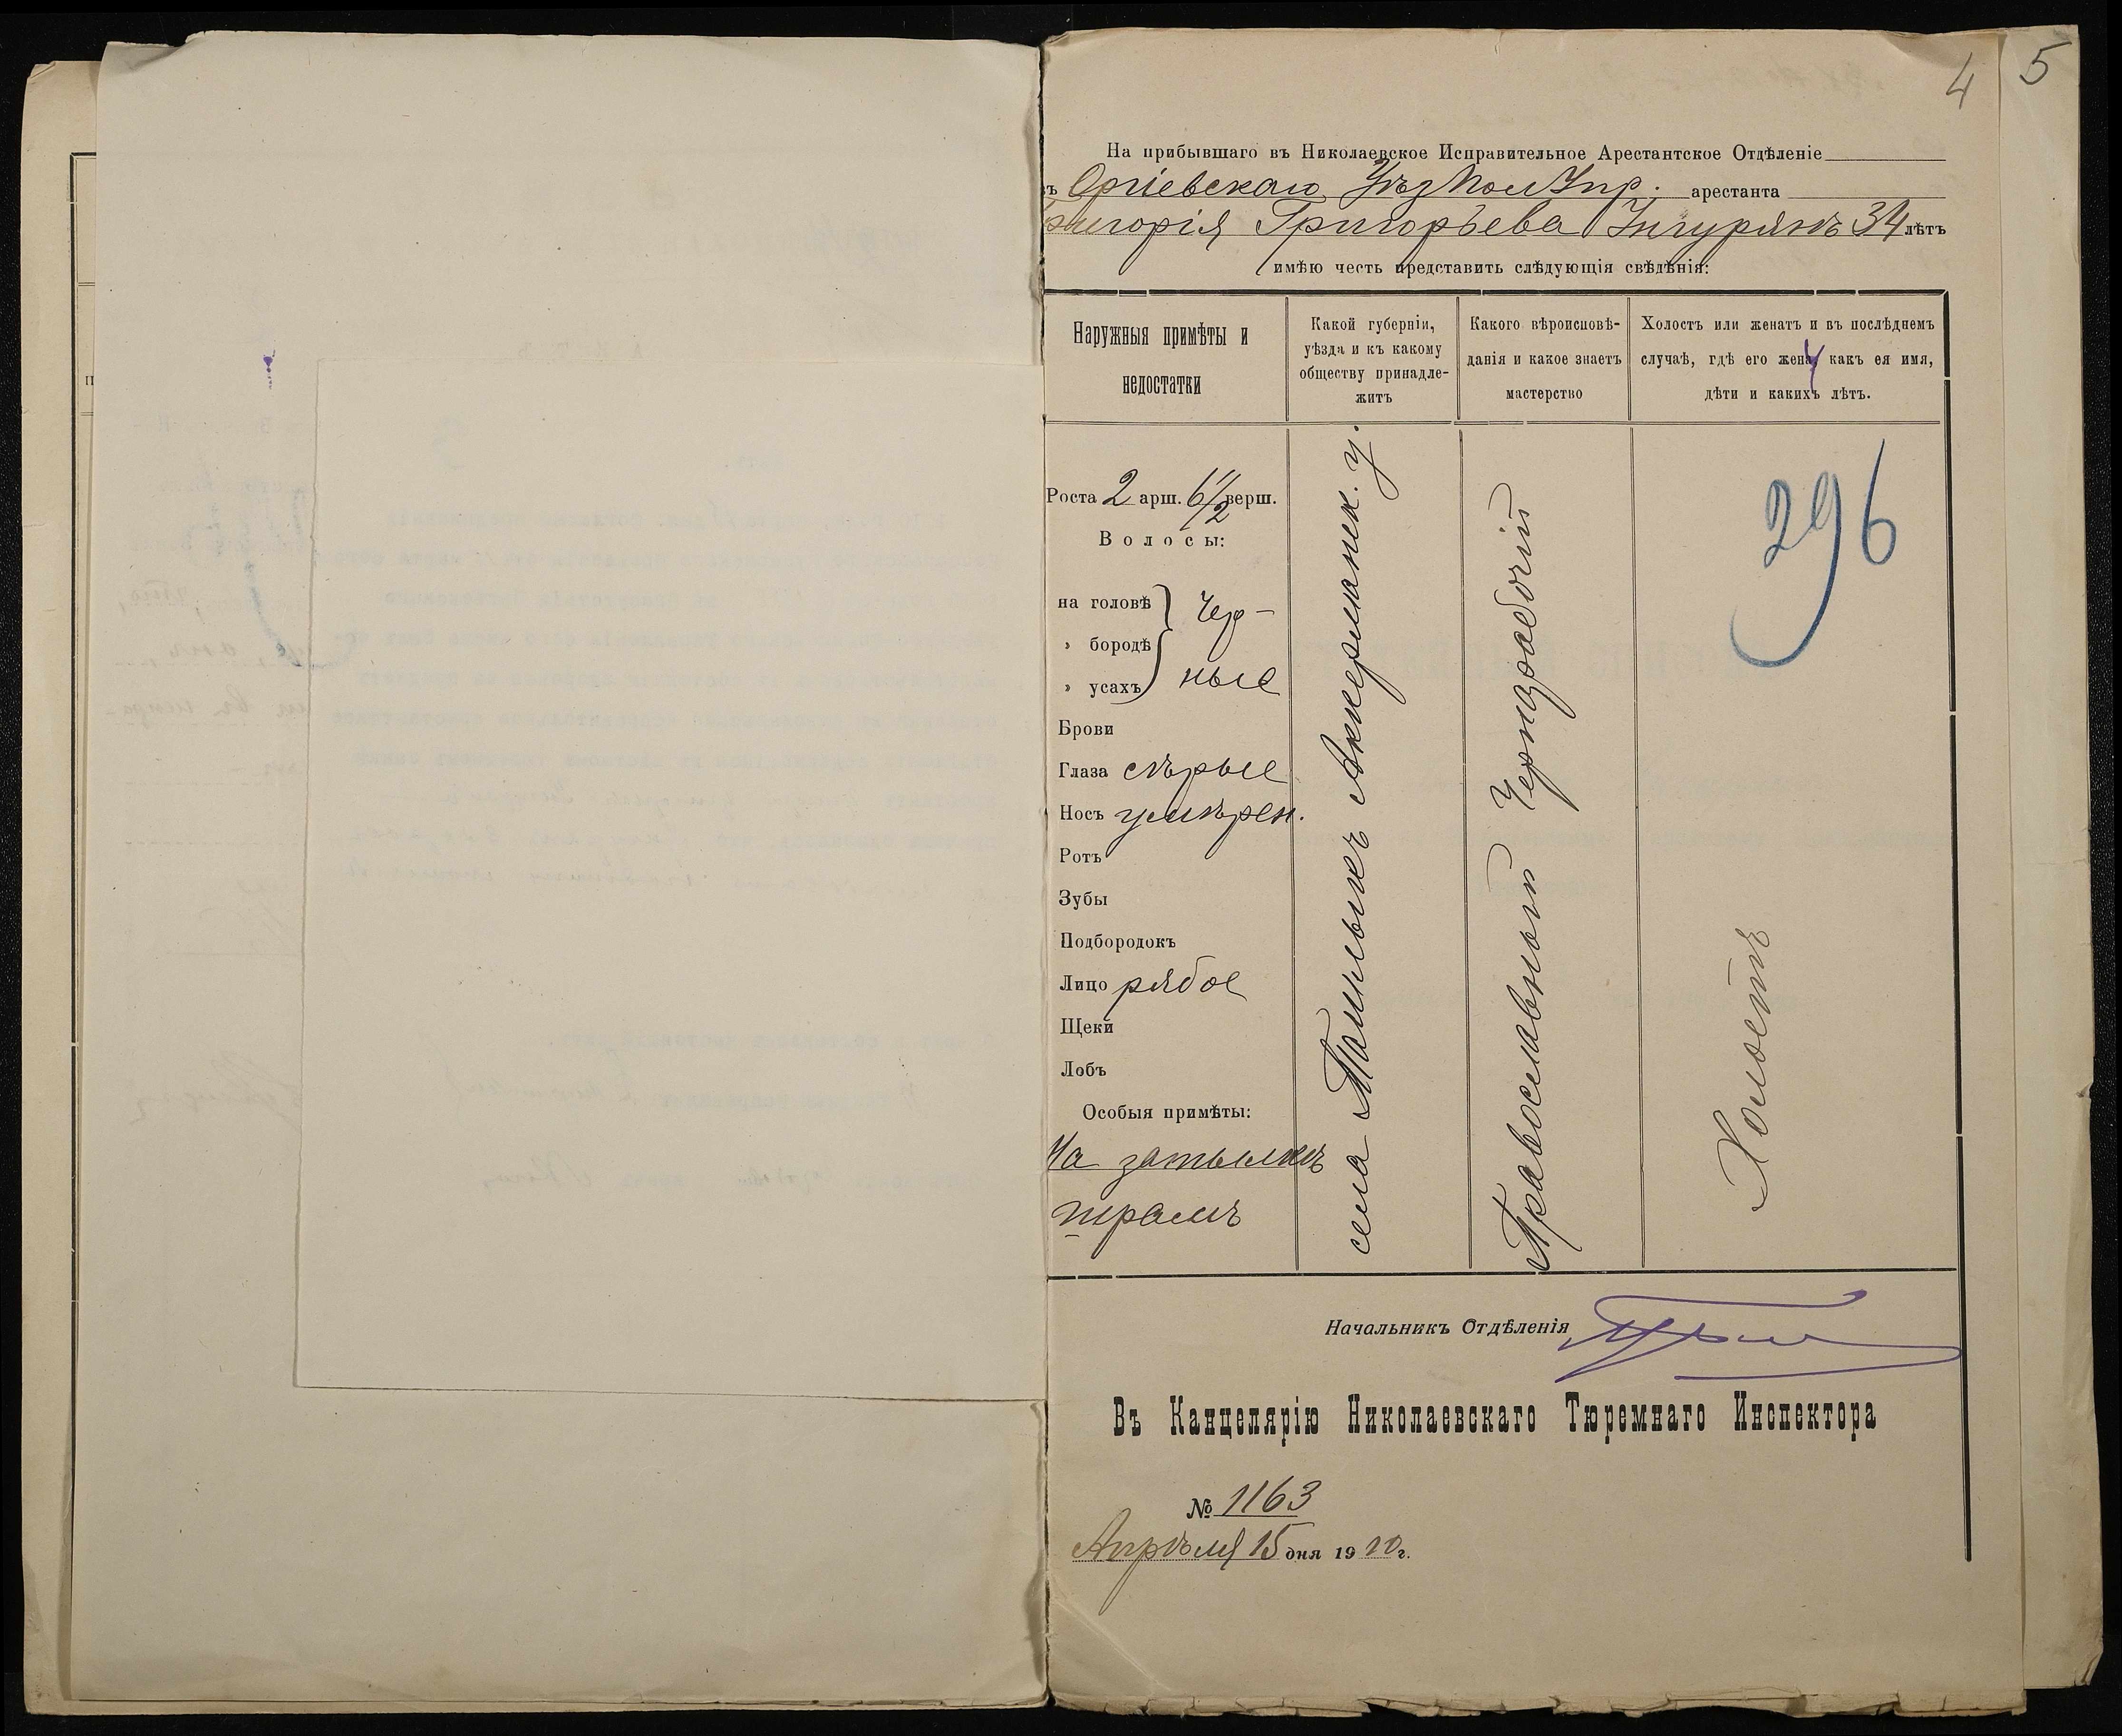 4 5
На прибывшаго въ Николаевское Исправительное Арестантское Отдѣленіе
Оргіевскаго Уѣз Пол Упр. арестанта
Григорія Григорьева Унгурянъ 34 лѣтъ
имѣю честь представить слѣдующія свѣдѣнія:
Наружныя примѣты и
недостатки
Какой губерніи,
уѣзда и къ какому
обществу принадле-
житъ
Какого вѣроисповѣ-
данія и какое знаетъ
мастерство
Холостъ или женатъ и въ послѣднемъ
случаѣ, гдѣ его жена, какъ ея имя,
дѣти и какихъ лѣтъ.
Роста 2 арш. 6 1/2 верш.
Волосы:
на головѣ
" бородѣ
" усахъ
Чер-
ные
Брови
Глаза сѣрые
Носъ умѣрен.
Ротъ
Зубы
Подбородокъ
Лицо рябое
Щеки
Лобъ
Особыя примѣты:
На затылкѣ
шрамъ
села Аккерманск. у.
Православный Чернорабочій
296
Холостъ
Начальникъ Отдѣленія
Въ Канцелярію Николаевскаго Тюремнаго Инспектора
№ 1163
Апрѣля 15 дня 1910 г.